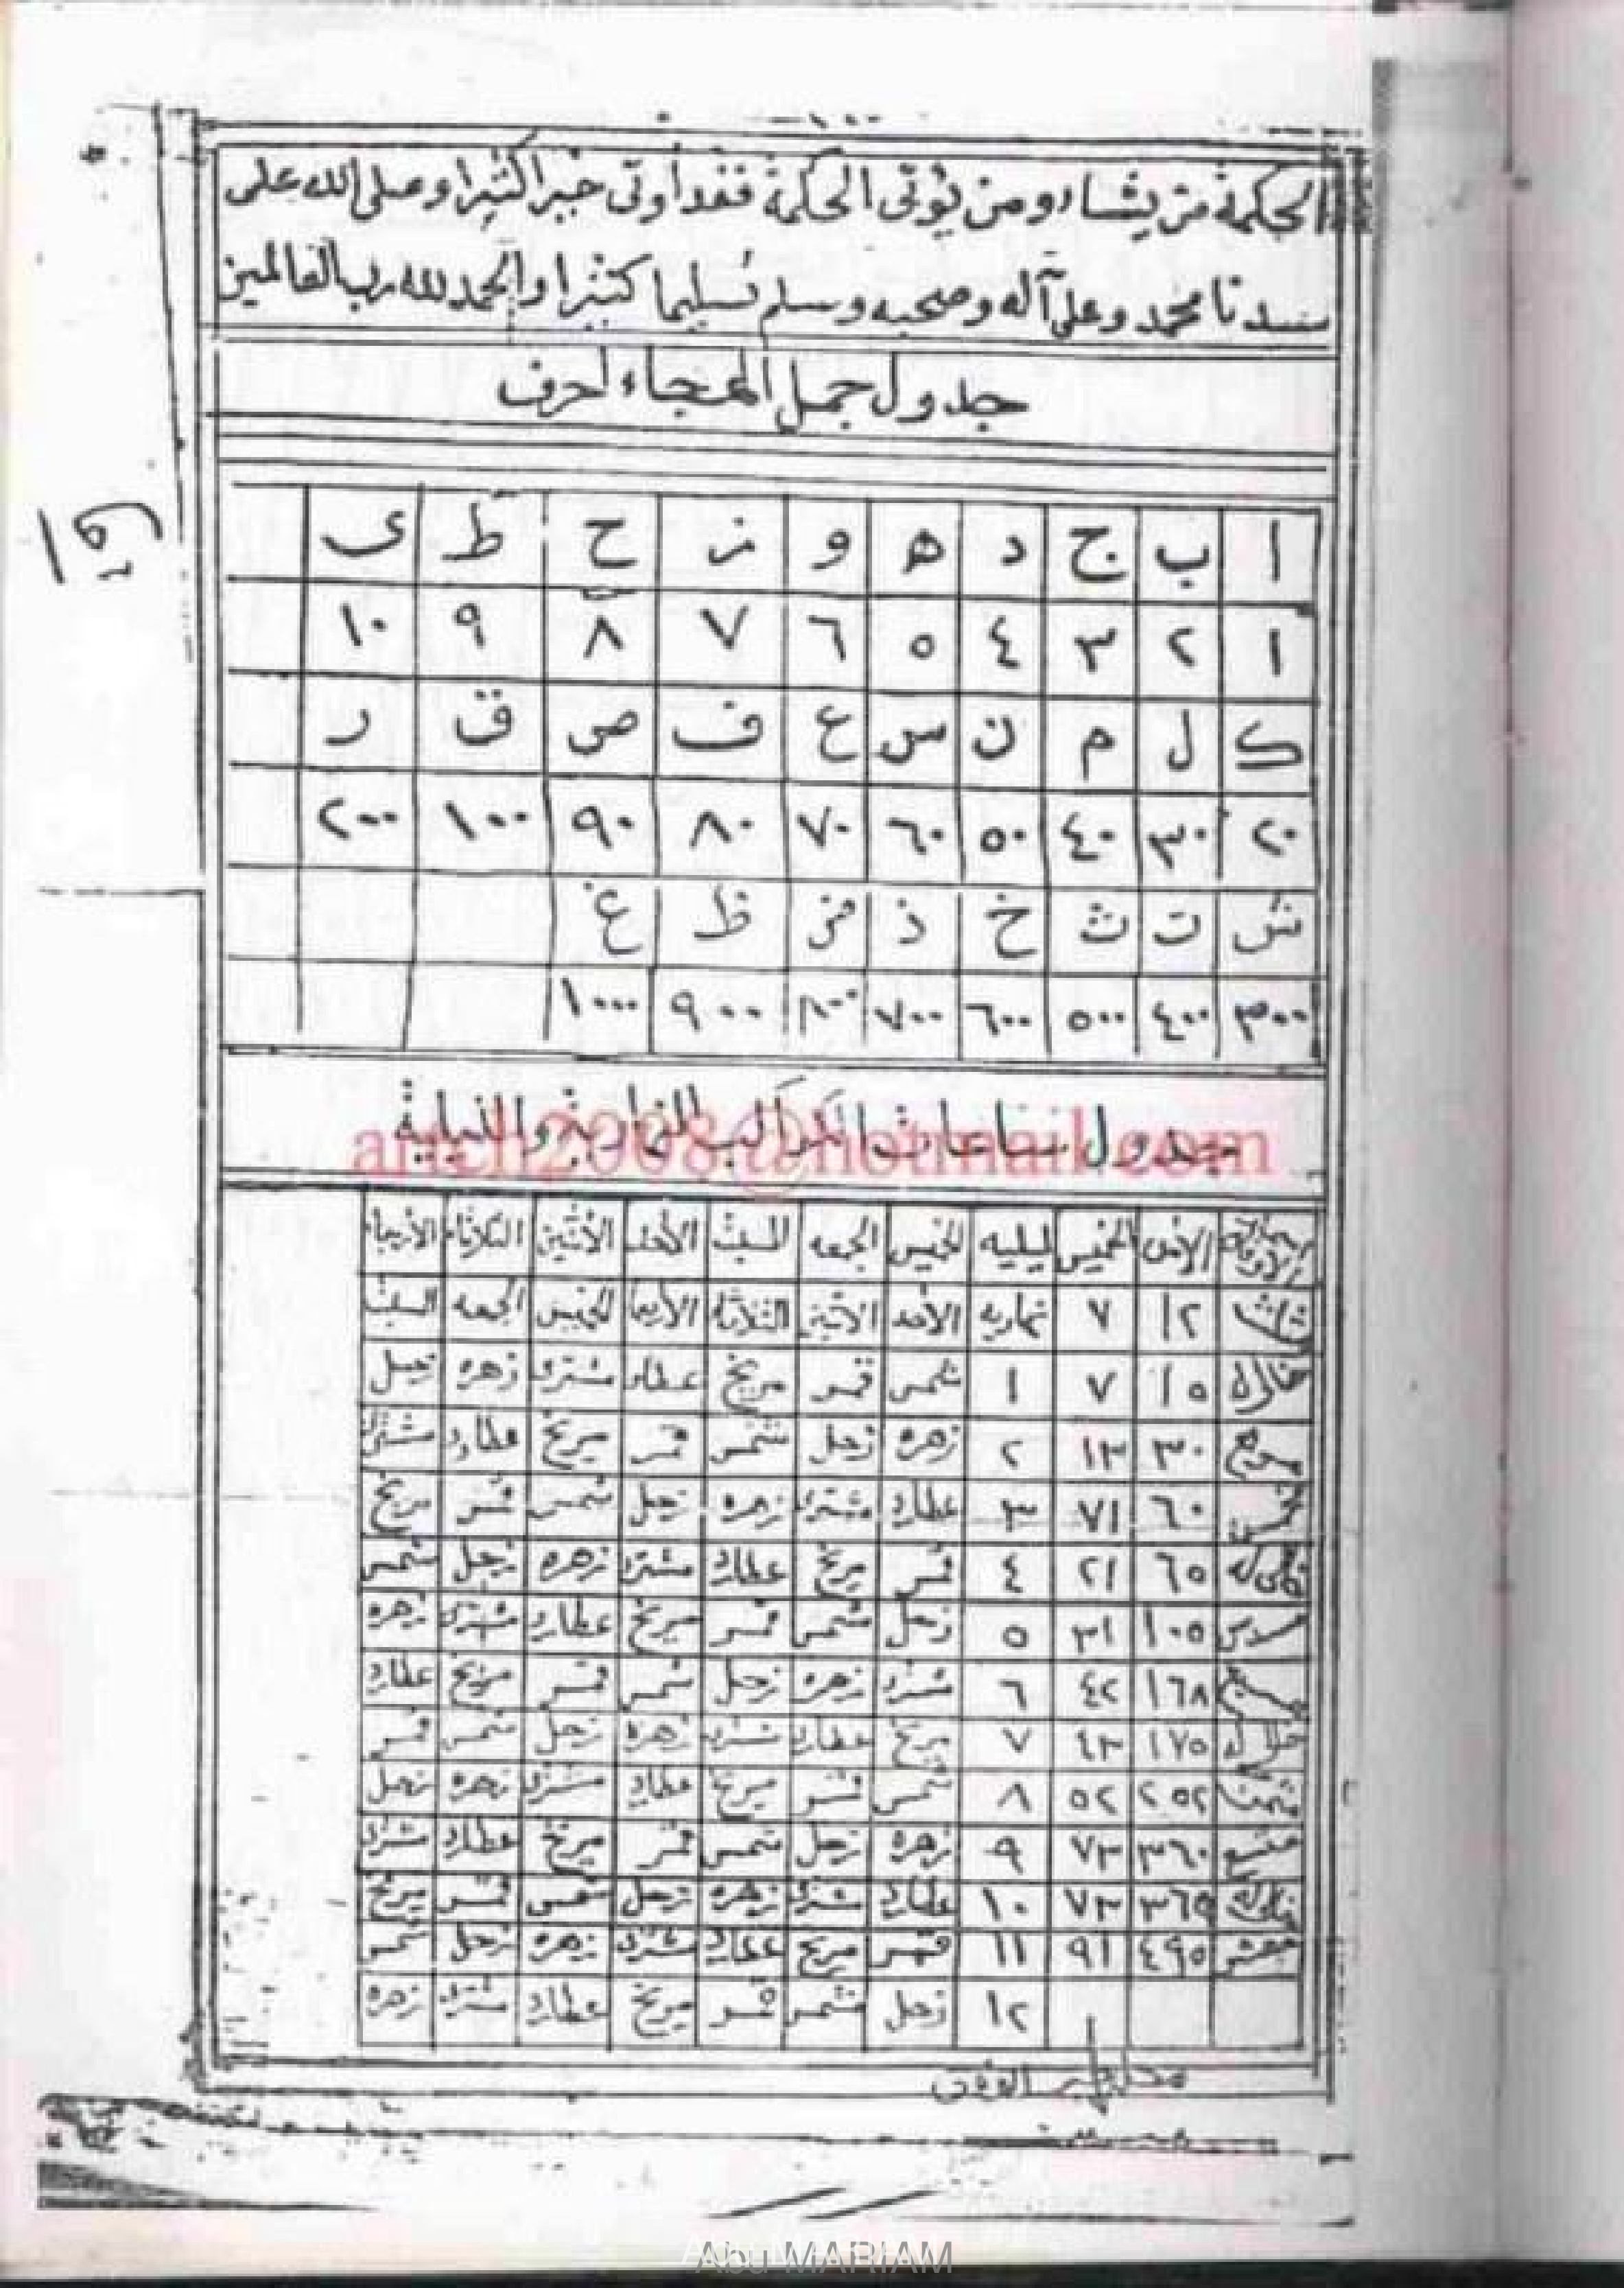 -١٠٠-
الحكمة من يشاء ومن يؤتى الحكمة فقد أوتى خيرا كثيرا وصلى الله على
سيدنا محمد وعلى آله وصحبه وسلم تسليما كثيرا والحمد لله رب العالمين
جدول جمل الهجاء احرف
ا ب ج د ه و ز ح ط ى
١ ٢ ٣ ٤ ٥ ٦ ٧ ٨ ٩ ١٠
ك ل م ن س ع ف ص ق ر
٢٠ ٣٠ ٤٠ ٥٠ ٦٠ ٧٠ ٨٠ ٩٠ ١٠٠ ٢٠٠
ش ت ث خ ذ ض ظ غ
٣٠٠ ٤٠٠ ٥٠٠ ٦٠٠ ٧٠٠ ٨٠٠ ٩٠٠ ١٠٠٠
جدول ساعات الكواكب النهارية والليلية
الخميس ليليه الخميس الجمعه السبت الأحد الأثنين الثلاثاء الأربعاء
١٢ ٧ نهاريه الأحد الاثنين الثلاثاء الأربعا الخميس الجمعه السبت
١٥ ٧ ١ شمس قمر مريخ عطارد مشترى زهره زحل
٣٠ ١٣ ٢ زهره زحل شمس قمر مريخ عطارد مشترى
٦٠ ٧١ ٣ عطارد مشترى زهره زحل شمس قمر مريخ
٦٥ ٢١ ٤ قمر مريخ عطارد مشترى زهره زحل شمس
مسدس ١٠٥ ٣١ ٥ زحل شمس قمر مريخ عطارد مشترى زهره
مسبع ١٦٨ ٤٢ ٦ مشترى زهره زحل شمس قمر مريخ عطارد
١٧٥ ٤٣ ٧ مريخ عطارد مشترى زهره زحل شمس قمر
مثمن ٢٥٢ ٥٢ ٨ شمس قمر مريخ عطارد مشترى زهره زحل
متسع ٣٦٠ ٧٣ ٩ زهره زحل شمس قمر مريخ عطارد مشترى
٣٦٥ ٧٣ ١٠ عطارد مشترى زهره زحل شمس قمر مريخ
معشر ٤٩٥ ٩١ ١١ قمر مريخ عطارد مشترى زهره زحل شمس
١٢ زحل شمس قمر مريخ عطارد مشترى زهره
Abu MARIAM